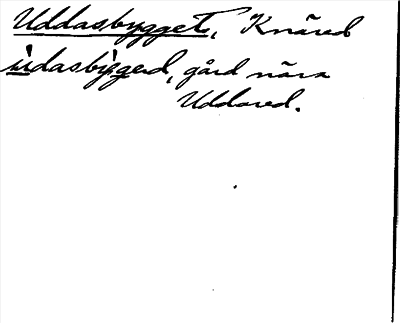 Uddasbygget, Knäred
üdasbỳgəd, gård nära
Uddared.